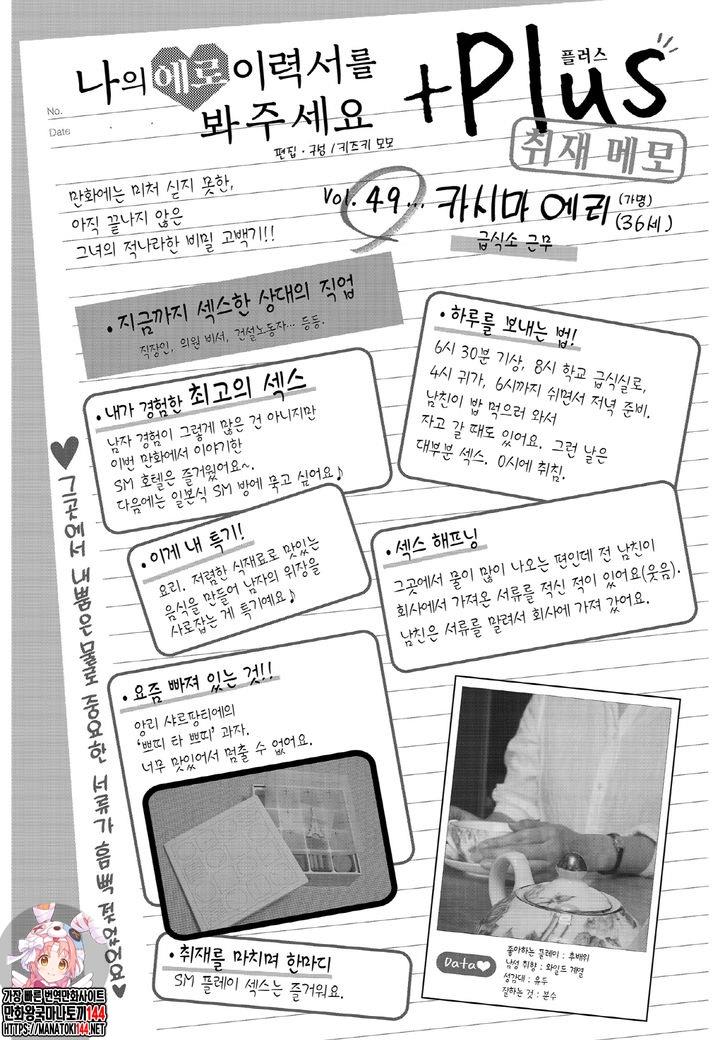 나의 에로 이력서를
봐주세요
+Plus
플러스
취재 메모
No.
Date
편집·구성/키즈키 모모
만화에는 미처 싣지 못한,
아직 끝나지 않은
그녀의 적나라한 비밀 고백기!!
Vol. 49... 카시마 에리 (가명)
(36세)
급식소 근무
•지금까지 섹스한 상대의 직업
직장인, 의원 비서, 건설노동자… 등등.
•하루를 보내는 법!
6시 30분 기상, 8시 학교 급식실로,
4시 귀가, 6시까지 쉬면서 저녁 준비.
남친이 밥 먹으러 와서
자고 갈 때도 있어요. 그런 날은
대부분 섹스. 0시에 취침.
•내가 경험한 최고의 섹스
남자 경험이 그렇게 많은 건 아니지만
이번 만화에서 이야기한
SM 호텔은 즐거웠어요~.
다음에는 일본식 SM 방에 묵고 싶어요♪
•이게 내 특기!
요리. 저렴한 식재료로 맛있는
음식을 만들어 남자의 위장을
사로잡는 게 특기예요♪
•섹스 해프닝
그곳에서 물이 많이 나오는 편인데 전 남친이
회사에서 가져온 서류를 적신 적이 있어요(웃음).
남친은 서류를 말려서 회사에 가져 갔어요.
♥그곳에서 내뿜은 물로 중요한 서류가 흠뻑 젖었어요♥
•요즘 빠져 있는 것!!
앙리 샤르팡티에의
'쁘띠 타 쁘띠' 과자.
너무 맛있어서 멈출 수 없어요.
•취재를 마치며 한마디
SM 플레이 섹스는 즐거워요.
Data♥
좋아하는 플레이 : 후배위
남성 취향 : 와일드 계열
성감대 : 유두
잘하는 것 : 분수
가장 빠른 번역만화사이트
만화왕국마나토끼144
HTTPS://MANATOKI144.NET